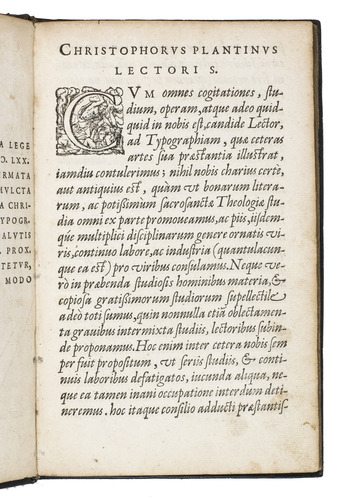 A LEGE
O. LXX.
RMATA
MVLCTA
A CHRI-
TYPOGR.
ALVTIS
A PROX.
TETVR,
MODO
CHRISTOPHORVS PLANTINVS
LECTORI S.
CVM omnes cogitationes, stu-
dium, operam, atque adeo quid-
quid in nobis est, candide Lector,
ad Typographiam, quæ ceteras
artes sua præstantia illustrat,
iamdiu contulerimus; nihil nobis charius certè,
aut antiquius est, quàm vt bonarum litera-
rum, ac potißimùm sacrosanctæ Theologiæ stu-
dia omni ex parte promoueamus, ac piis, iisdem-
que multiplici disciplinarum genere ornatis vi-
ris, continuo labore, ac industria (quantulacun-
que ea est) pro viribus consulamus. Neque ve-
rò in præbenda studiosis hominibus materia, &
copiosa gratißimorum studiorum supellectile
adeò toti sumus, quin nonnulla etiã oblectamen-
ta grauibus intermixta studiis, lectoribus subin-
de proponamus. Hoc enim inter cetera nobis sem
per fuit propositum, vt seriis studiis, & conti-
nuis laboribus defatigatos, iucunda aliqua, ne-
que ea tamen inani occupatione interdum deti-
neremus. hoc itaque consilio adducti præstantis-